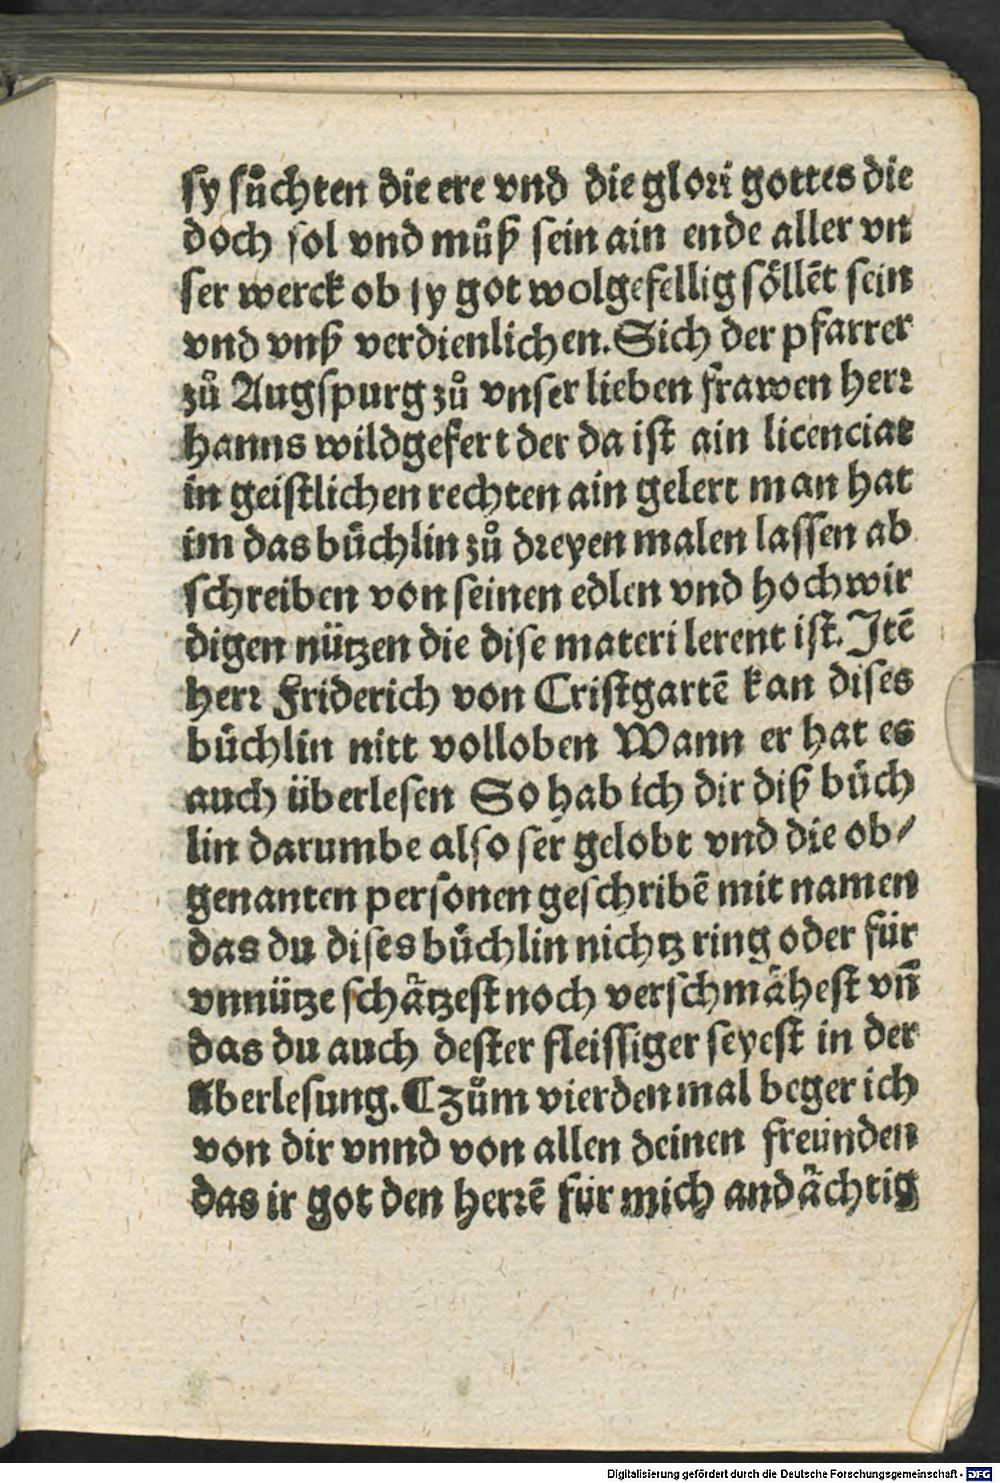 sy sůchten die ere vnd die glori gottes die
doch sol vnd můß sein ain ende aller vn
ser werck ob sy got wolgefellig söllēt sein
vnd vnß verdienlichen. Sich der pfarrer
zů Augspurg zů vnser lieben frawen herr
hanns wildgefert der da ist ain licenciat
in geistlichen rechten ain gelert man hat
im das bůchlin zů dreyen malen lassen ab
schreiben von seinen edlen vnd hochwir
digen nützen die dise materi lerent ist. Itē
herr Friderich von Cristgartē kan dises
bůchlin nitt volloben Wann er hat es
auch überlesen So hab ich dir diß bůch
lin darumbe also ser gelobt vnd die ob⸗
genanten personen geschribē mit namen
das du dises bůchlin nichtz ring oder für
vnnütze schätzest noch verschmähest vn̄
das du auch dester fleissiger seyest in der
überlesung. ⸿ Zům vierden mal beger ich
von dir vnnd von allen deinen freünden
das ir got den herrē für mich andächtig
Digitalisierung gefördert durch die Deutsche Forschungsgemeinschaft - DFG